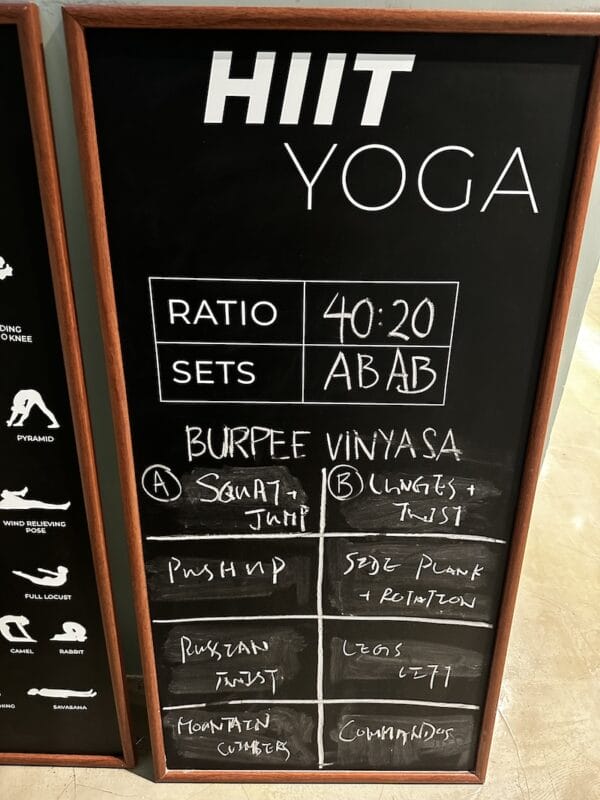 HIIT
YOGA
RATIO 40:20
SETS ABAB
BURPEE VINYASA
A SQUAT + JUMP
B LUNGES + TWIST
PUSHUP
SIDE PLANK + ROTATION
RUSSIAN TWIST
LEGS LIFT
MOUNTAIN CLIMBERS
COMMANDOS
DING
O KNEE
PYRAMID
WIND RELIEVING
POSE
FULL LOCUST
CAMEL RABBIT
KING SAVASANA